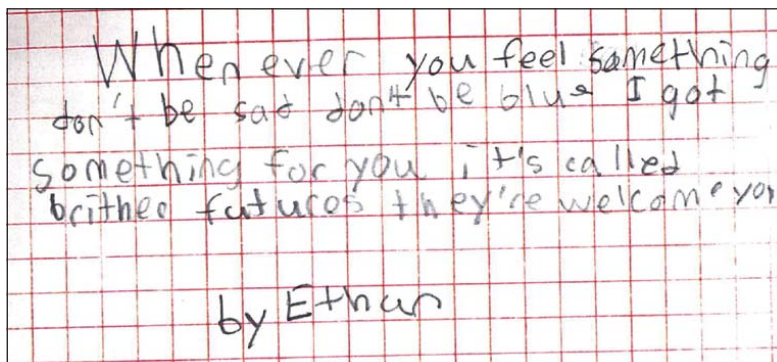 When ever you feel something
don't be sad don't be blue I got
something for you it's called
brither futures they're welcome you
by Ethan